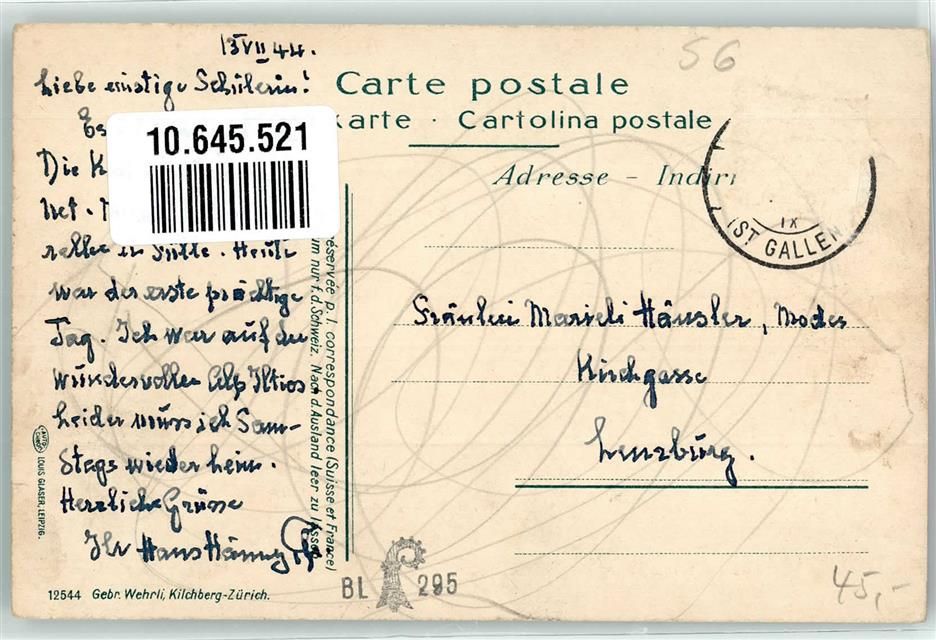 13 VII 44.
Liebe einstige Schülerin!
Es
Die K
net.
in Fülle. Heute
war der erste prächtige
Tag. Ich war auf der
wundervollen Alp Iltios
Leider muss ich Sam-
stags wieder heim.
Herzliche Grüsse
Ihr Hans Hänny
10.645.521
Carte postale
karte · Cartolina postale
Adresse – Indiri
56
IX
ST GALLEN
Fräulein Marieli Häusler, Modes
Kirchgasse
Lenzburg.
réservée p. l. correspondance (Suisse et France)
um nur f. d. Schweiz. Nach d. Ausland leer zu lassen
AUTO
LOUIS GLASER, LEIPZIG.
12544 Gebr. Wehrli, Kilchberg-Zürich.
BL 295
45,-